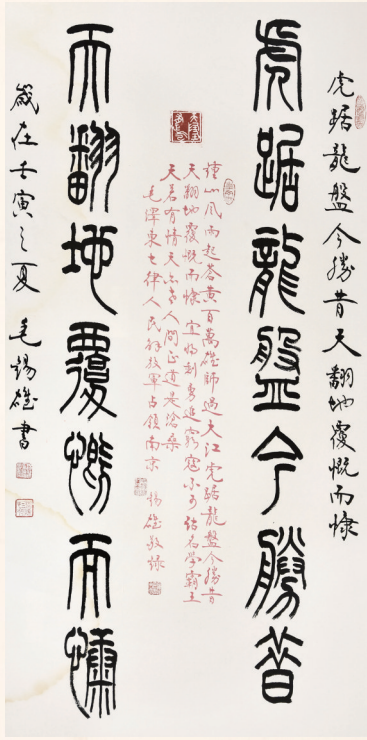 虎踞龍盤今勝昔天翻地覆慨而慷
虎踞龍盤今勝昔
鍾山風雨起蒼黃百萬雄師過大江虎踞龍盤今勝昔
天翻地覆慨而慷宜將剩勇追窮寇不可沽名學霸王
天若有情天亦老人間正道是滄桑
毛澤東七律人民解放軍占領南京 錫雄敬錄
天翻地覆慨而慷
歲在壬寅之夏毛錫雄書